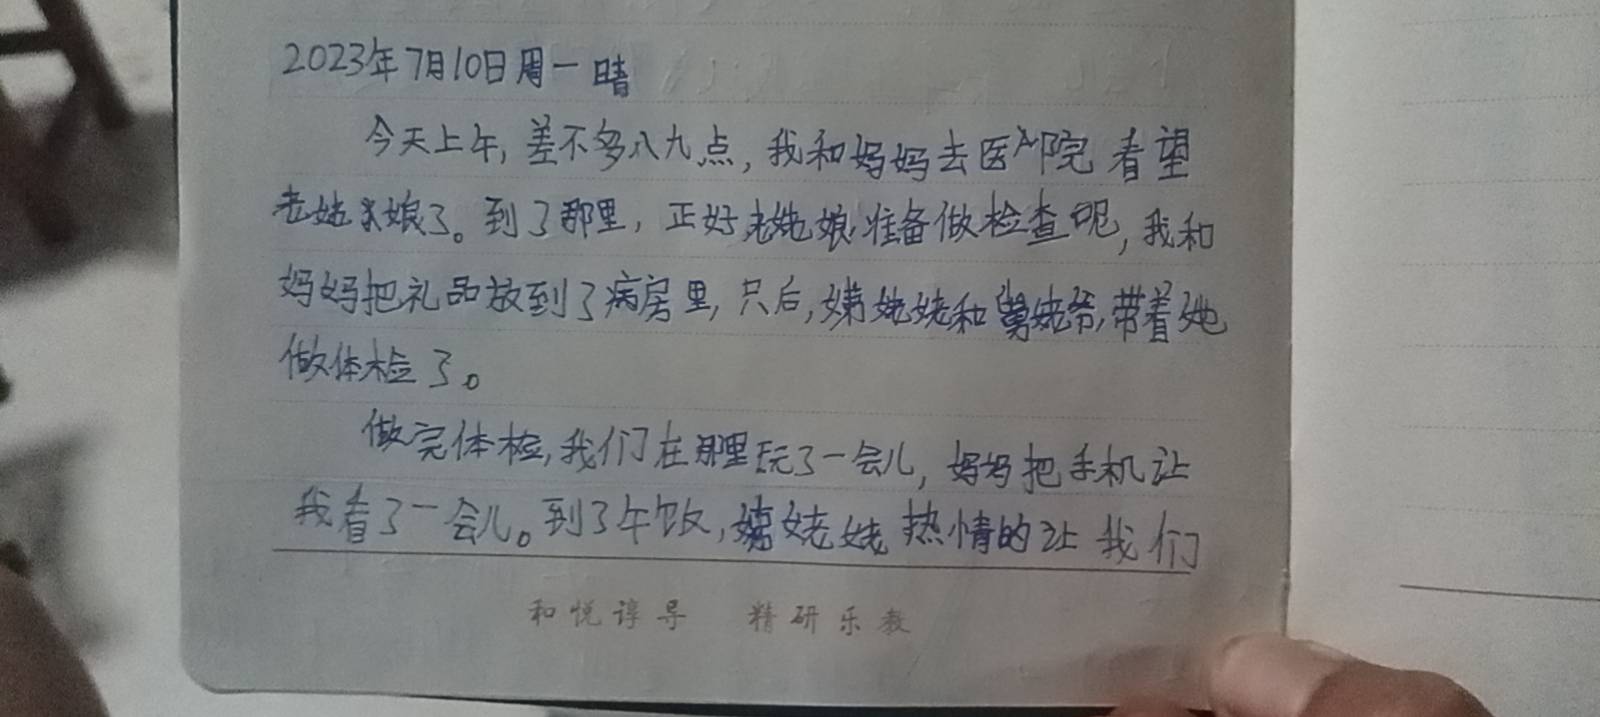 2023年7月10日周一 晴
今天上午,差不多八九点,我和妈妈去医院看望
老姑娘了。到了那里,正好老姑娘准备做检查呢,我和
妈妈把礼品放到了病房里,只后,姨姥姥和舅姥爷,带着她
做体检了。
做完体检,我们在那里玩了一会儿,妈妈把手机让
我看了一会儿。到了午饭,姨姥姥热情的让我们
和悦谆导 精研乐教